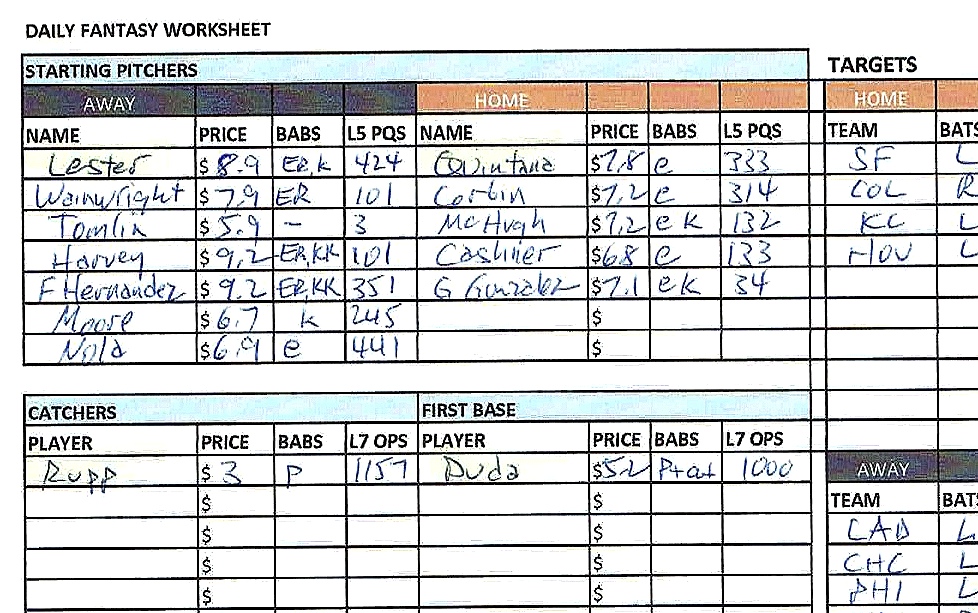 DAILY FANTASY WORKSHEET
STARTING PITCHERS TARGETS
AWAY HOME HOME
NAME PRICE BABS L5 PQS NAME PRICE BABS L5 PQS TEAM BATS
Lester $ 8.9 ER,K 424 Quintana $7.8 e 333 SF L
Wainwright $ 7.9 ER 101 Corbin $7.2 e 314 COL R
Tomlin $ 5.9 - 3 McHugh $7.2 e k 132 KC L
Harvey $ 9.2 ER,KK 101 Cashner $6.8 e 133 HOU L
F Hernandez $ 9.2 ER,KK 351 G Gonzalez $7.1 ek 34
Moore $ 6.7 k 245 $
Nola $6.9 e 441 $
CATCHERS FIRST BASE
PLAYER PRICE BABS L7 OPS PLAYER PRICE BABS L7 OPS
Rupp $ 3 P 1157 Duda $5.2 1000 AWAY
$ $ TEAM BATS
$ $ L
$ $ CHC L
$ $ PHI L